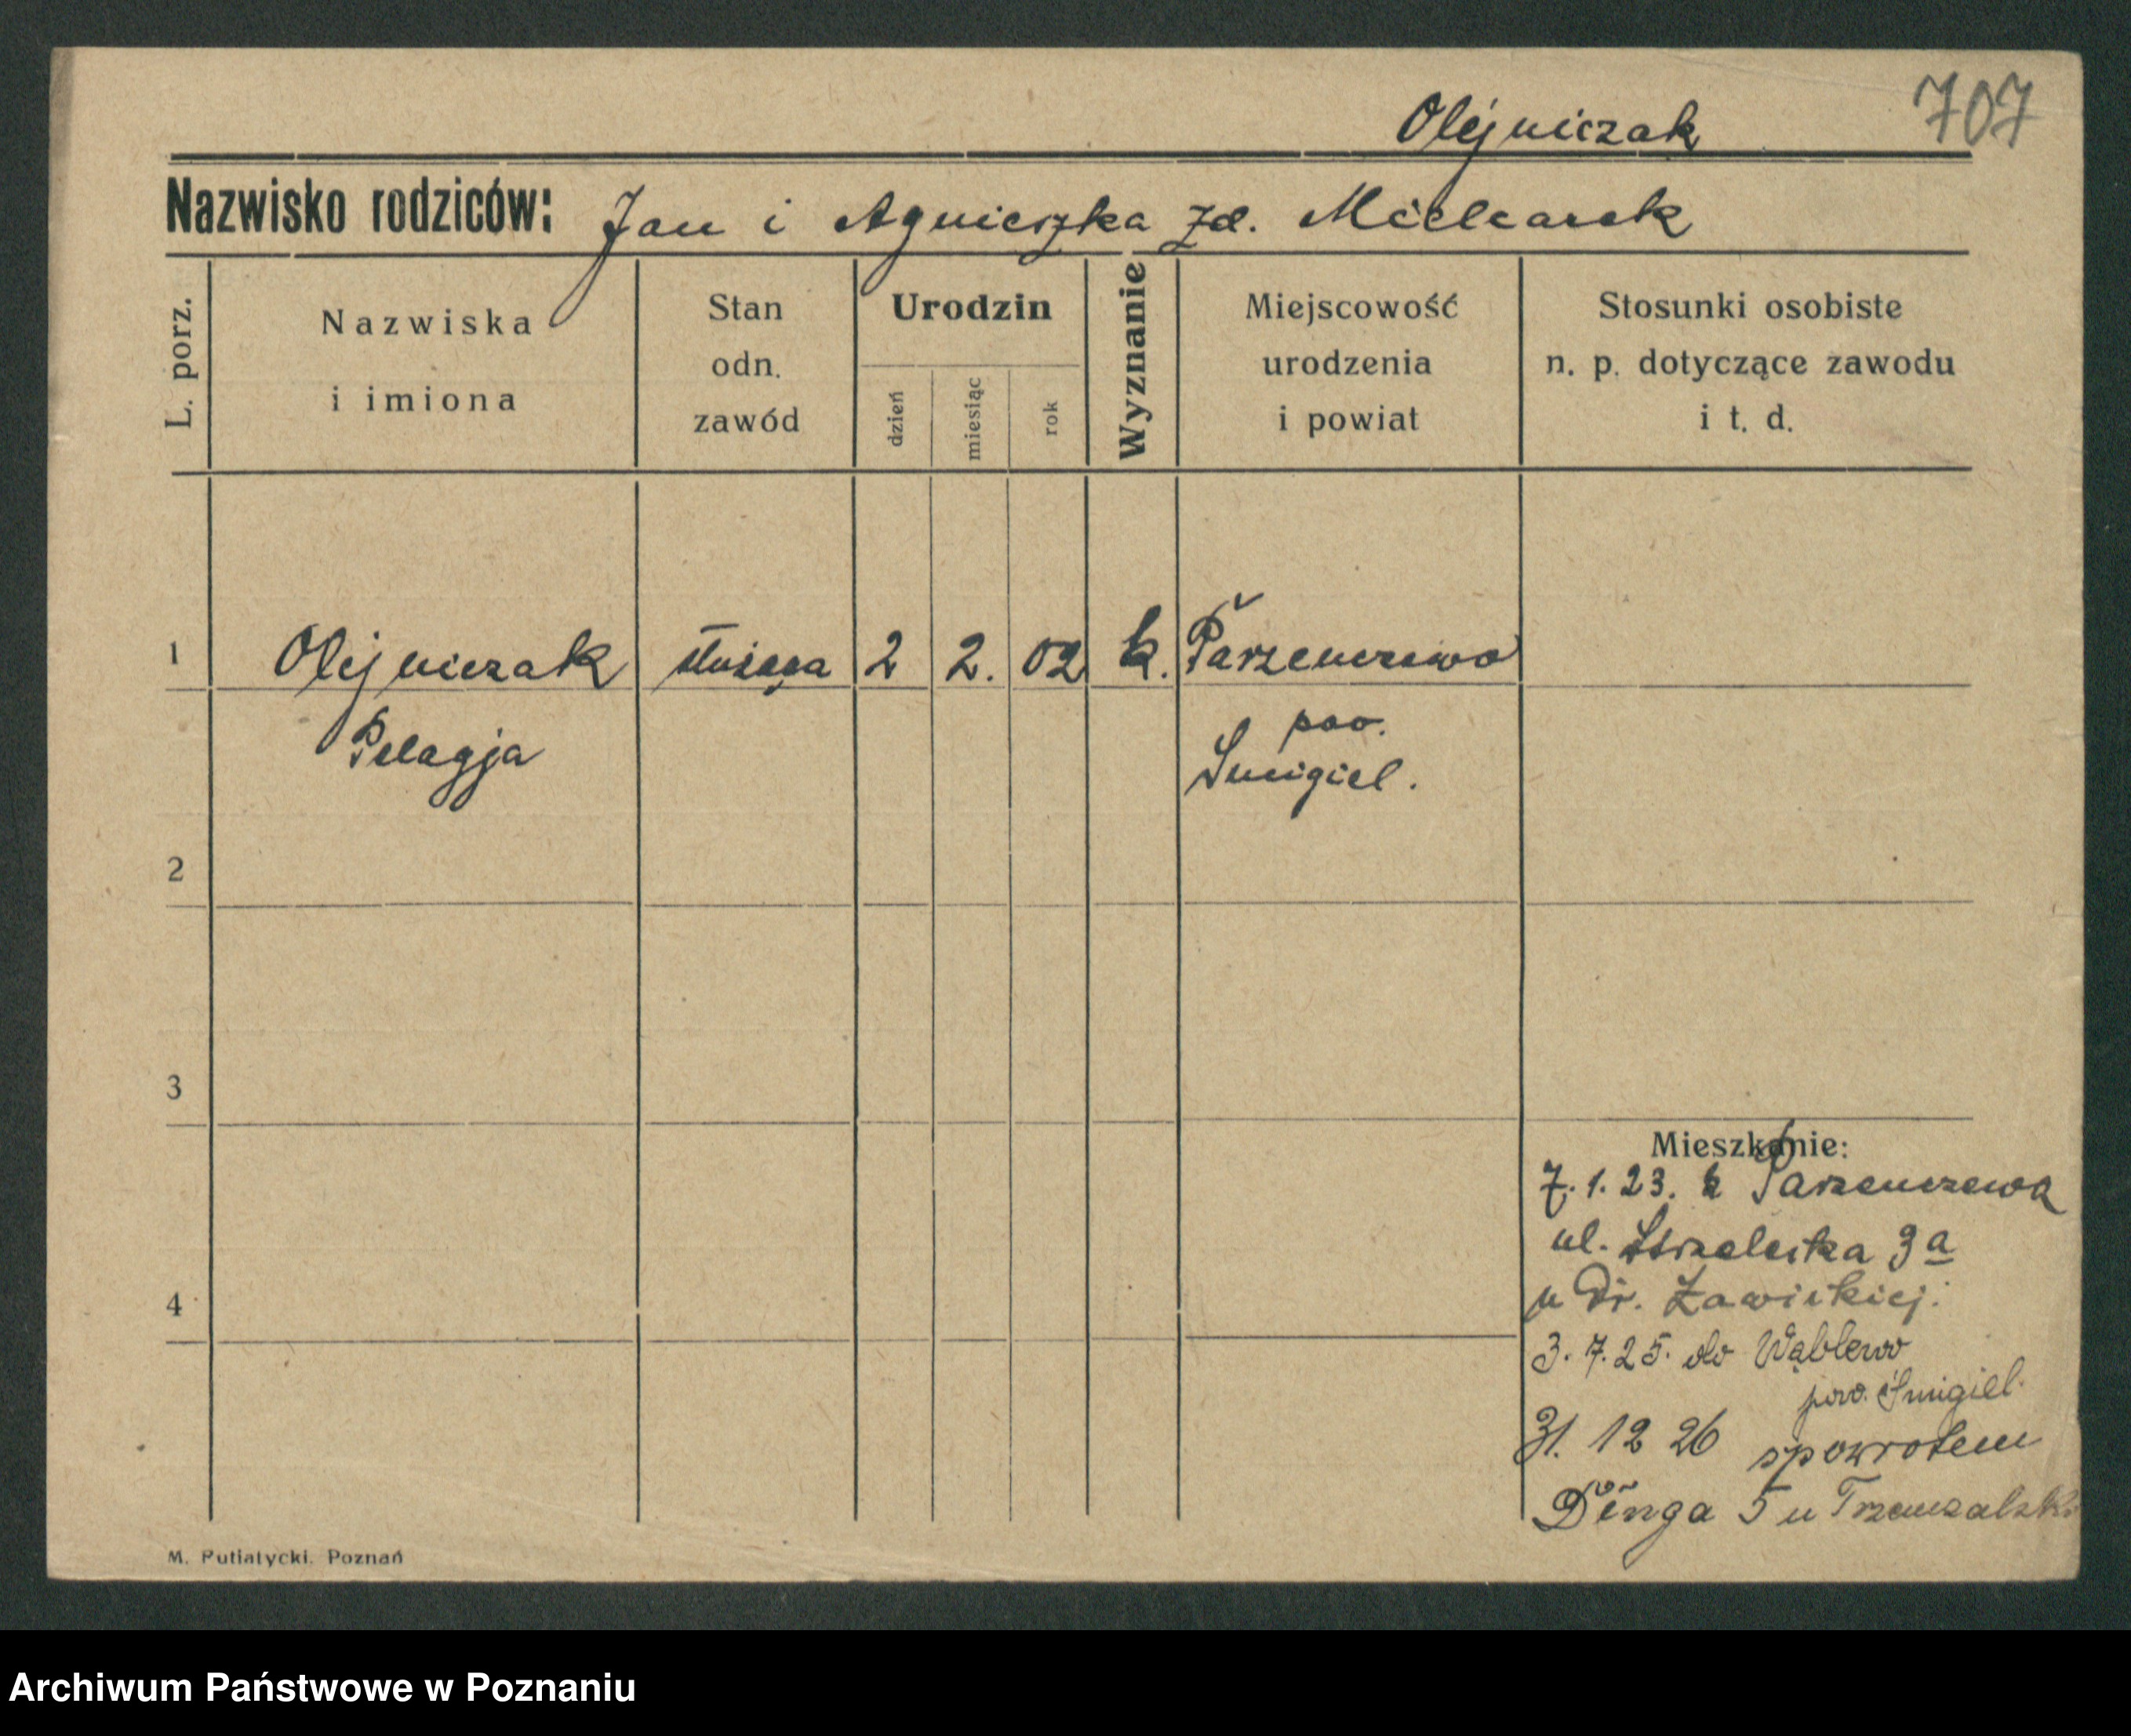 707
Olejniczak
Nazwisko rodziców: Jan i Agnieszka zd. Mielcarek
L. porz.
Nazwiska
i imiona
Stan
odn.
zawód
Urodzin
dzień
miesiąc
rok
Wyznanie
Miejscowość
urodzenia
i powiat
Stosunki osobiste
n. p. dotyczące zawodu
i t. d.
1 Olejniczak służąca 2 2. 02 k. Parzenczewo
Pelagja
pow.
Śmigiel.
2
3
4
Mieszkanie:
7. 1. 23. z Parzenczewa
ul. Strzelecka 3a
u Dr. Zawickiej.
3. 7. 25. do Wąblewo
pow. Śmigiel.
31. 12 26 spowrotem
5 u
M. Putiatycki. Poznań
Archiwum Państwowe w Poznaniu